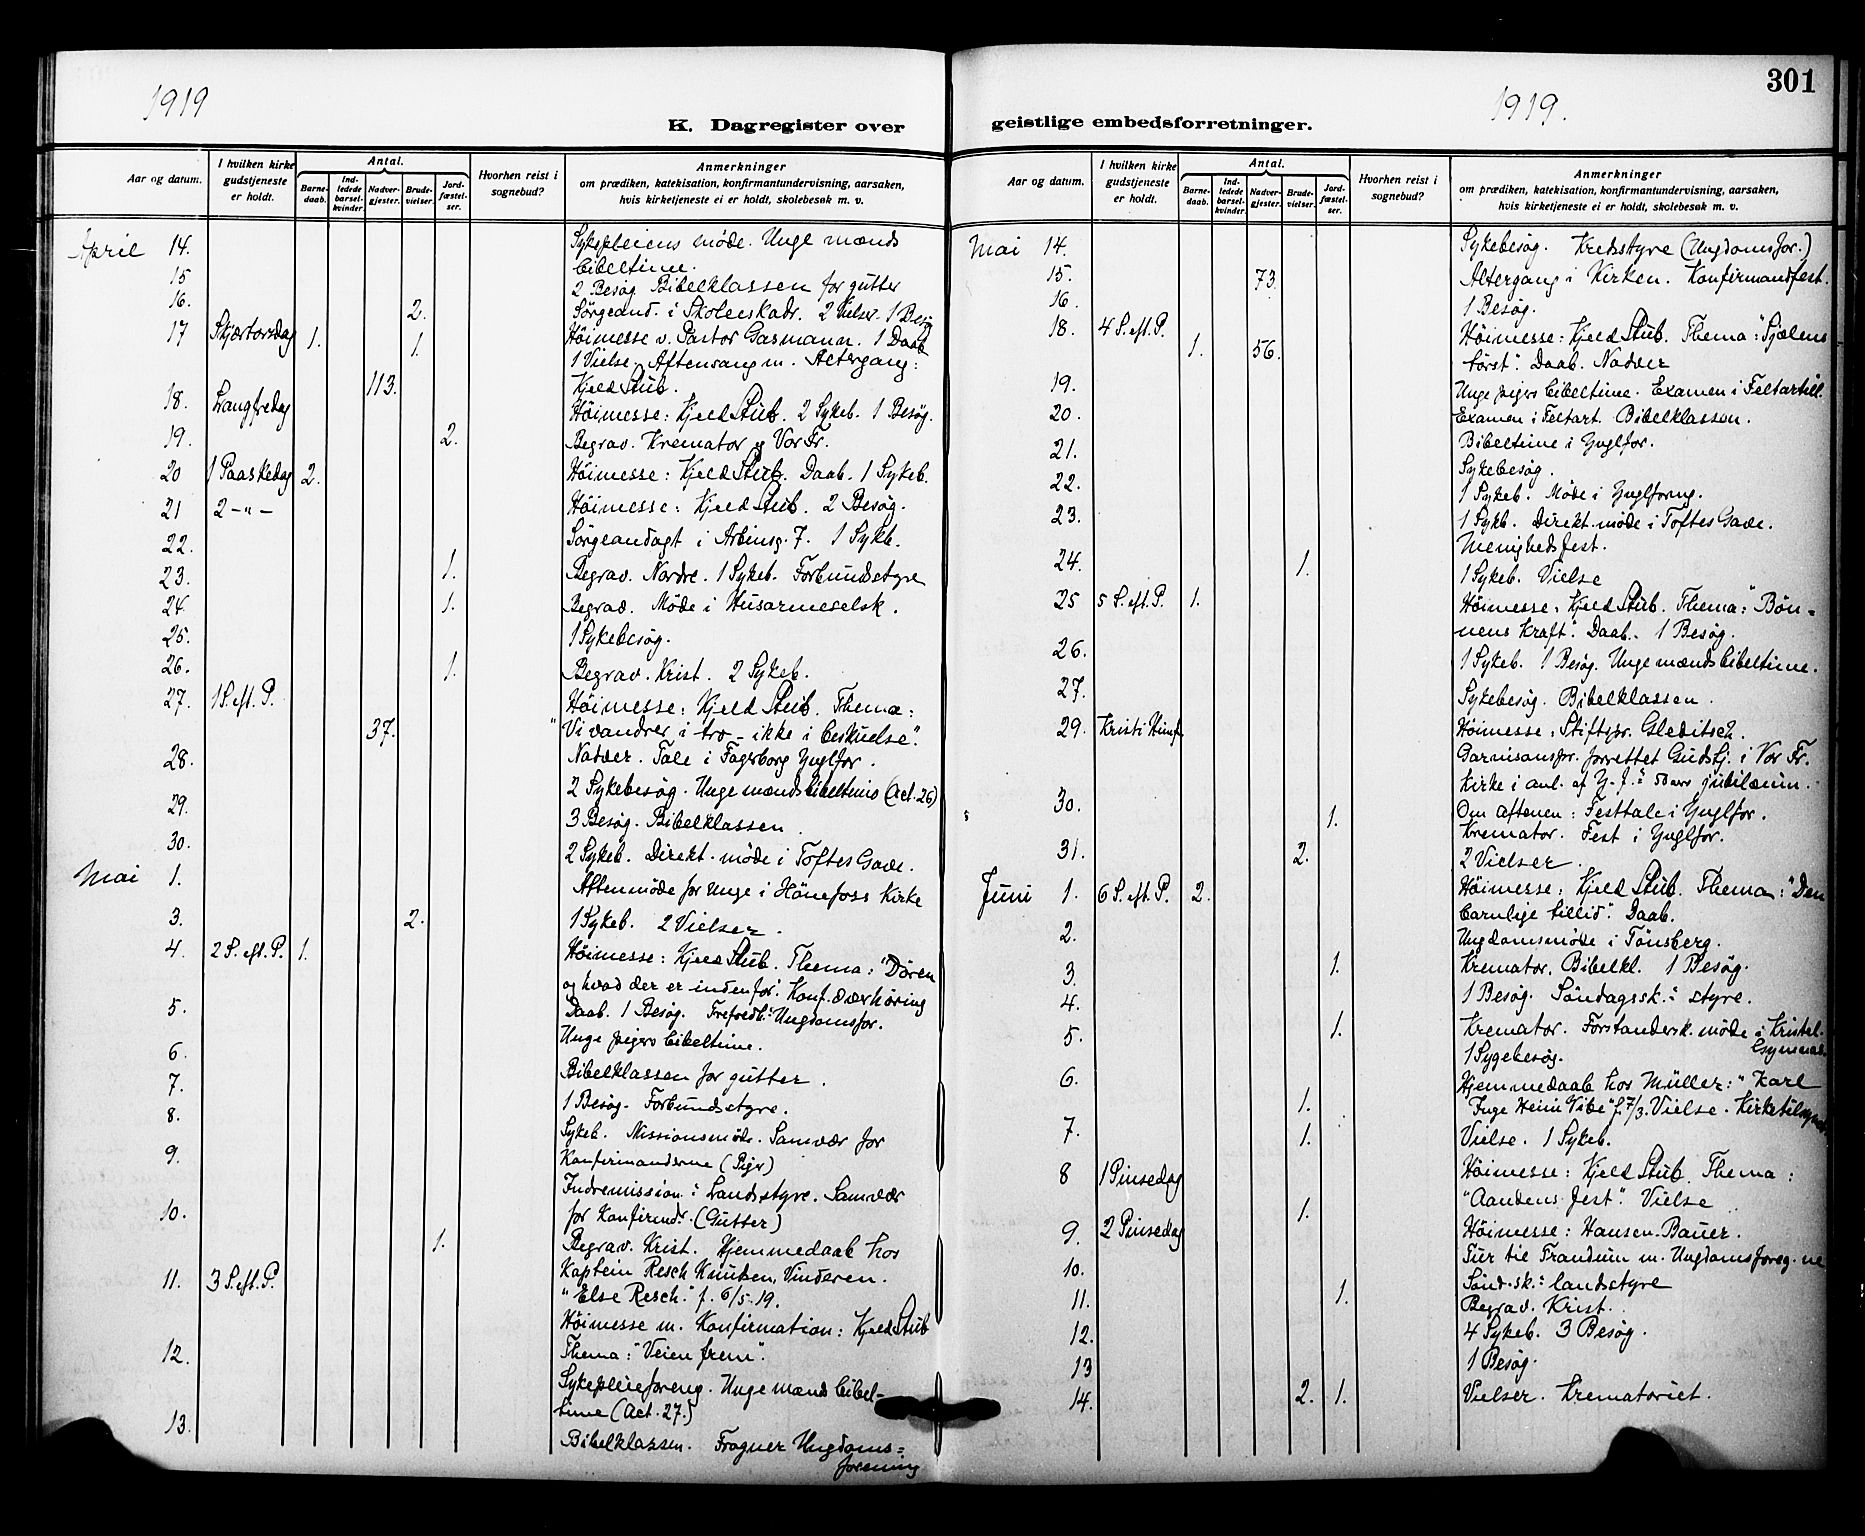 1919
K. Dagregister over
Aar og datum.
I hvilken kirke gudstjeneste er holdt.
Antal.
Barnedaab.
Indledede barselkvinder.
Nadvergjester.
Brudevielser.
Jordfæstelser.
Hvorhen reist i sognebud?
Anmerkninger
om prædiken, katekisation, konfirmantundervisning, aarsaken,
hvis kirketjeneste ei er holdt, skolebesøk m. v.
April 14. Sykepleiens møde. Unge mænds
bibeltime.
15 2 Besøg Bibelklassen for gutter
16. 2. Sørgeand. i Skoleeskadr. 2 Vielser. 1 Besøg
17 Skjærtorsdag 1. 1. Høimesse v. Pastor Gasmann. 1 Daab
1 Vielse, Aftensang m. Altergang:
113. Kjeld Stub.
18. Langfredag Høimesse: Kjeld Stub. 2 Sykeb. 1 Besøg.
19. 2. Begrav. Kremator og Vor Fr.
20 1 Paaskedag 2. Høimesse: Kjeld Stub. Daab. 1 Sykeb.
21 2 -"- Høimesse: Kjeld Stub. 2 Besøg.
22. Sørgeandagt i Arbinsg. 7. 1 Sykb.
23. 1. Begrav. Nordre. 1 Sykeb. Forbundsstyre
24. 1. Begrav. Møde i Husarmeselsk.
25. 1 Sykebesøg.
26. 1. Begrav. Krist. 2 Sykeb.
27. 1 S. eft. P. Høimesse: Kjeld Stub. Thema:
37. "Vi vandrer i tro - ikke i beskuelse".
Nadver. Tale i Fagerborg Ynglfor.
28. 2 Sykebesøg. Unge mænds bibeltime (Act. 26)
29. 3 Besøg. Bibelklassen.
30. 2 Sykeb. Direkt. møde i Toftes Gave.
Mai 1. Aftenmøde for Unge i Hönefoss Kirke
3. 2. 1 Sykeb. 2 Vielser.
4. 2 S. eft. P. 1. Høimesse: Kjeld Stub. Thema: "Døren
og hvad der er indenfor". Konf. overhøring
Daab. 1 Besøg. Ungdomsfor.
5. Unge pigers bibeltime.
6. Bibelklassen for gutter.
7. 1 Besøg. Forbundsstyre.
8. Sykeb. Missionsmøde. Samvær for
Konfirmanderne (Piger)
9. Indremission: Landsstyre. Samvær
for Konfirmdr. (Gutter)
10. 1. Begrav. Krist. Hjemmedaab hos
Kaptein Resch Knudsen, Vinderen.
"Else Resch." f. 6/5.19.
11. 3 S. eft. P. Høimesse m. Konfirmation: Kjeld Stub
Thema: "Veien frem".
12. Sykepleieforeng. Unge mænds bibel-
time (Act. 27.)
13. Bibelklassen. Frogner Ungdoms=
forening
301
1919.
geistlige embedsforretninger.
Aar og datum.
I hvilken kirke gudstjeneste er holdt.
Antal.
Barnedaab.
Indledede barselkvinder.
Nadvergjester.
Brudevielser.
Jordfæstelser.
Hvorhen reist i sognebud?
Anmerkninger
om prædiken, katekisation, konfirmantundervisning, aarsaken,
hvis kirketjeneste ei er holdt, skolebesøk m. v.
Mai 14. Sykebesøg. Kredsstyre (Ungdomsfor.)
15. 73. Altergang i Kirken. Konfirmandfest.
16. 1 Besøg.
18. 4 S. eft. P. 1. 56. Høimesse: Kjeld Stub. Thema: "Sjælens
tørst". Daab. Nadver
19. Unge pigers bibeltime. Examen i Feltartill.
20. Examen i Feltart. Bibelklassen.
21. Bibeltime i Ynglfor.
Sykebesøg.
22. 1 Sykeb. Møde i Ynglforng.
23. 1 Sykb. Direkt. møde i Toftes Gave.
Menighedsfest.
24. 1. 1 Sykeb. Vielse
25 5 S. eft. P. 1. Høimesse: Kjeld Stub. Thema: "Bøn-
nens Kraft". Daab. 1 Besøg.
26. 1 Sykeb. 1 Besøg. Unge mænds bibeltime.
27. Sykebesøg. Bibelklassen.
29. Kristi Himf. Høimesse: Stiftspr. Gleditsch.
Garnisonspr. forrettet Gudstj. i Vor Fr.
Kirke i anl. af Y. f.s 50 aars jubilæum.
Om aftenen: Festtale i Ynglfor.
30. 1. Kremator. Fest i Ynglfor.
31. 2. 2 Vielser.
Juni 1. 6 S. eft. P. 2. Høimesse: Kjeld Stub. Thema: "Den
barnlige tillid". Daab.
2. Ungdomsmøde i Tønsberg.
3. 1. Kremator. Bibelkl. 1 Besøg.
4. 1 Besøg. Søndagssk.s styre.
5. 1. Kremator. Forstandersk. møde i Kristel.
Gymnas.
1 Sygebesøg.
6. 1. Hjemmedaab hos Müller: "Karl
Inge Heini Vibe" f. 7/3. Vielse.
7. 1. Vielse. 1 Sykeb.
8 1 Pinsedag 1. Høimesse: Kjeld Stub. Thema:
"Aandens fest". Vielse
9. 2 Pinsedag Høimesse: Hansen-Bauer.
Tur til Trandum m. Ungdomsforeg.ne
10. Sønd.sk.s landsstyre
11. 1. Begrav. Krist.
12. 4 Sykeb. 3 Besøg.
13 1 Besøg.
14. 2. 1. Vielser. Krematoriet.